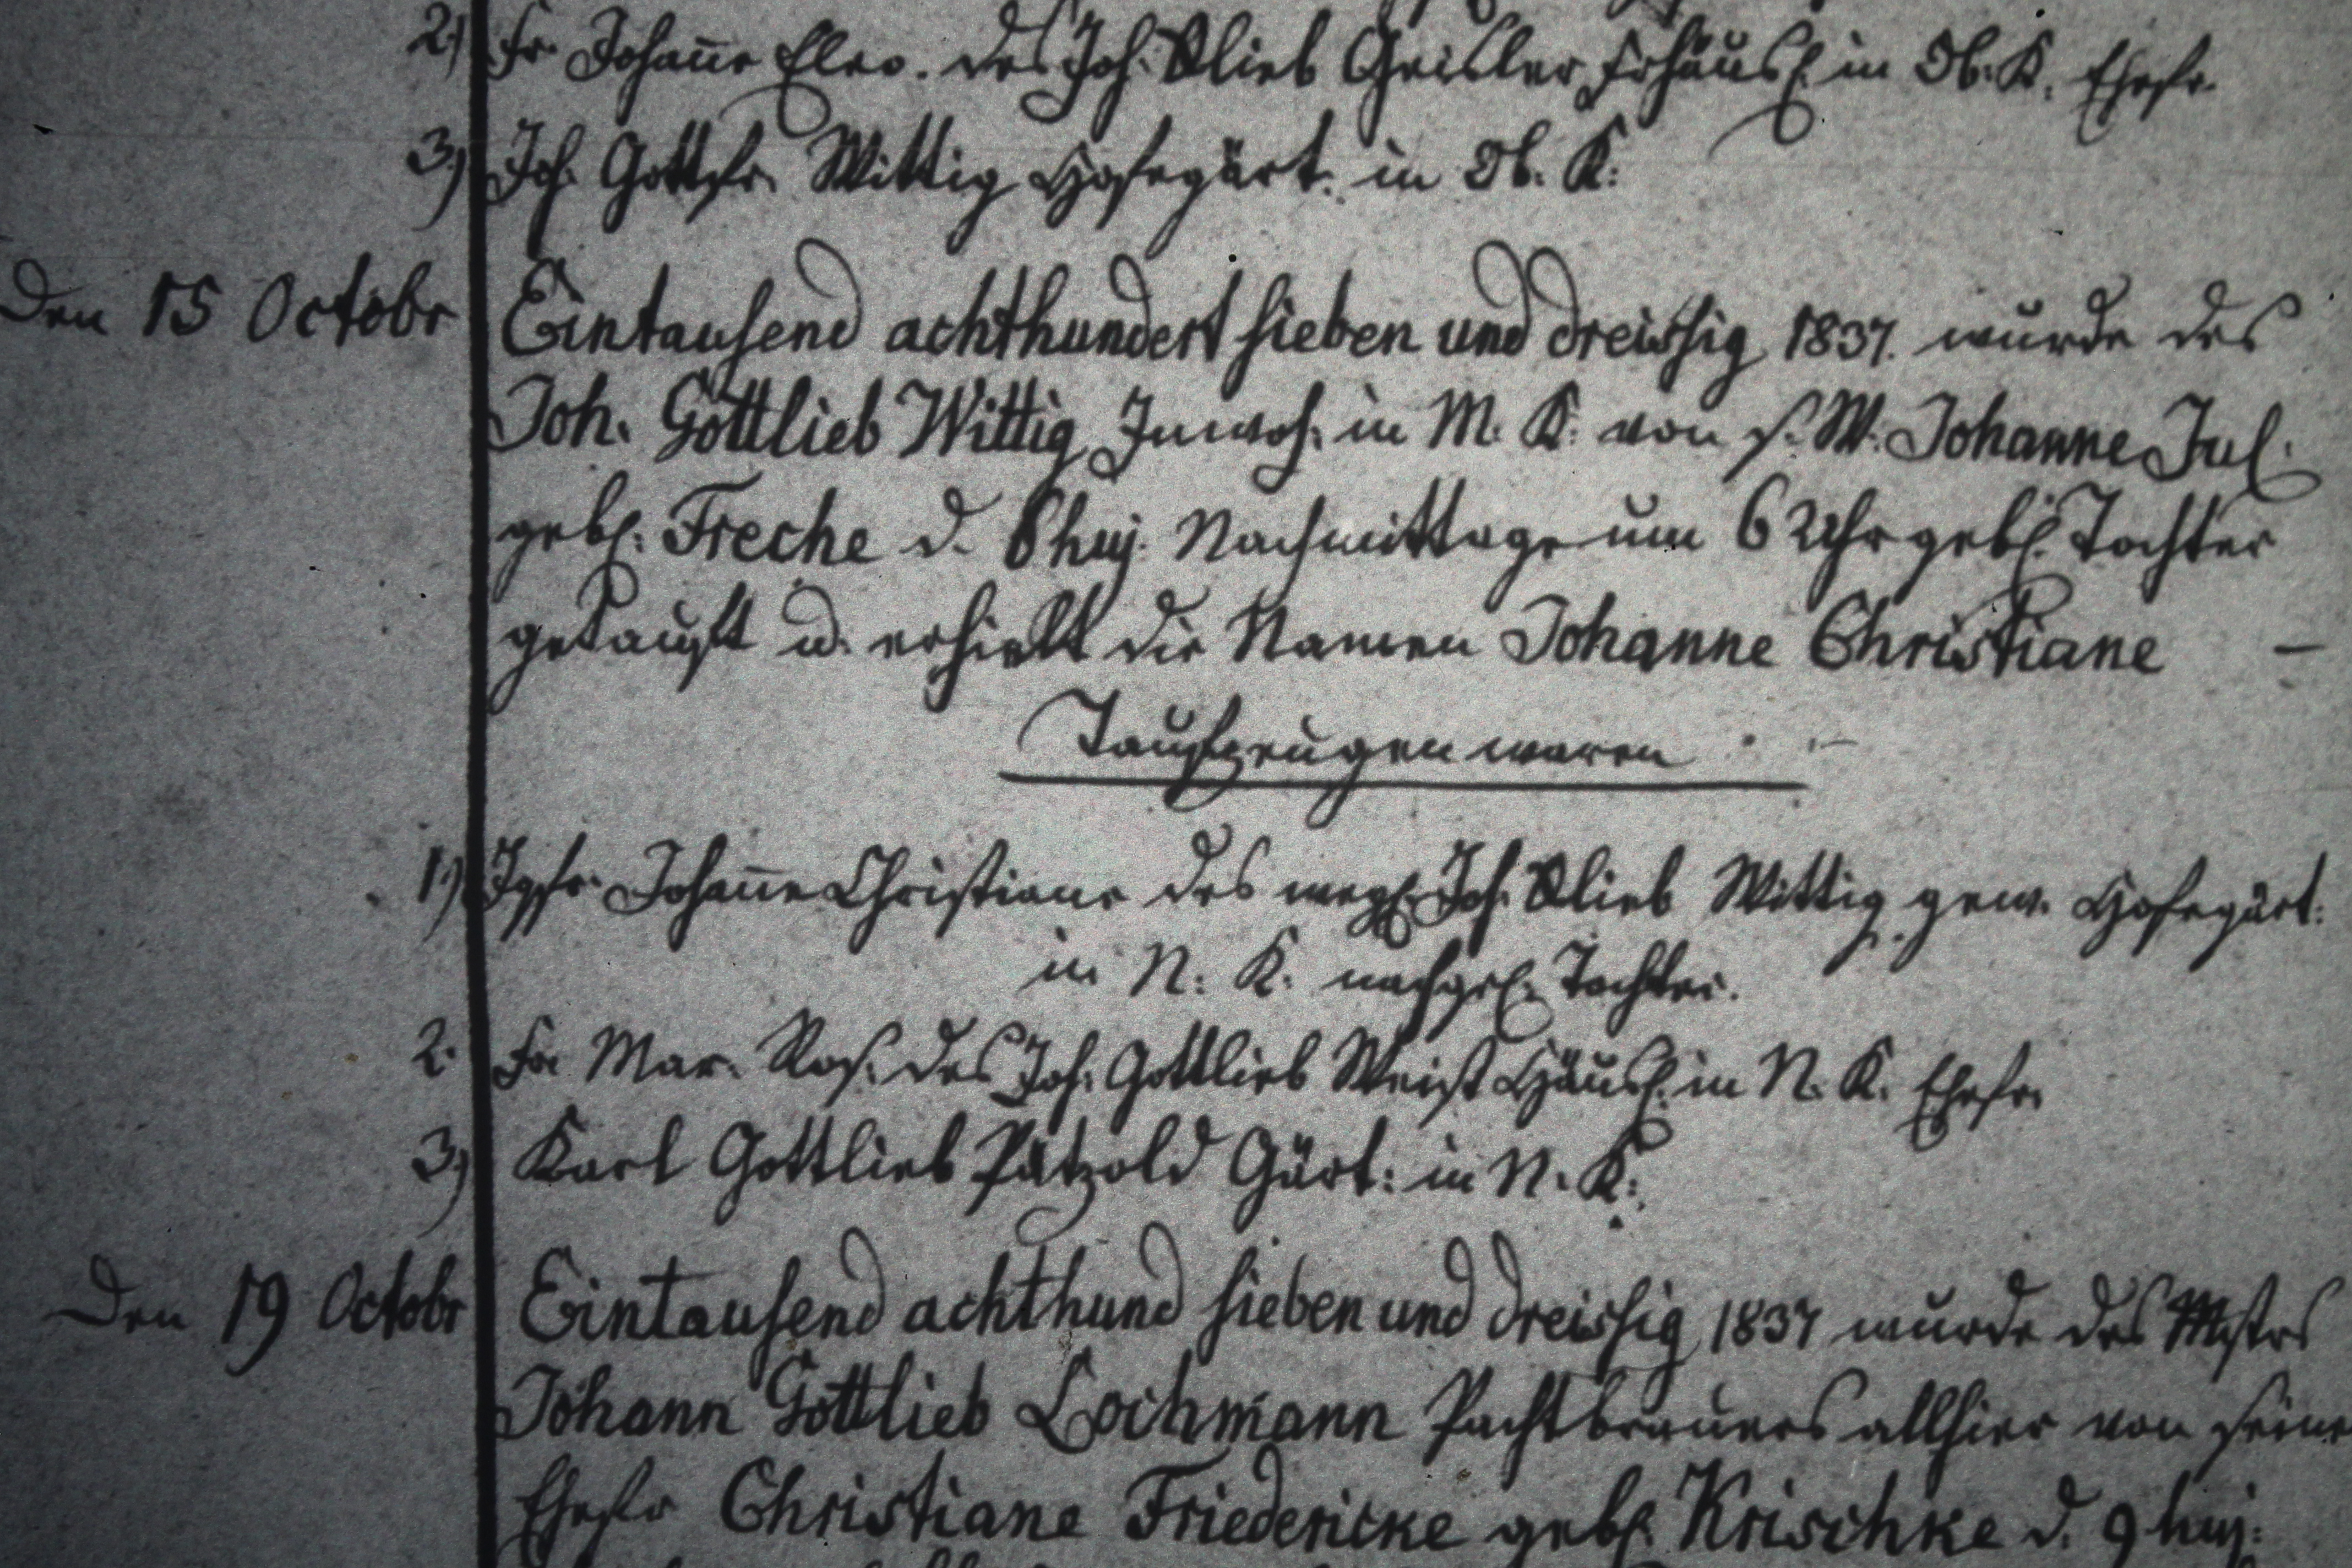 2.) Fr. Johañe Eleo. des Joh. Glieb Geisler Frhäusl. in Ob. K. Ehefr.
3.) Joh. Gottfr. Wittig Hofegärt. in Ob. K:
Den 15 Octobr Eintausend achthundert sieben und dreissig 1837. wurde des
Joh. Gottlieb Wittig Inwoh. in M. K. von s. W. Johanne Jul.
gebl. Freche d. 8 huj. Nachmittage um 6 Uhr gebl. Tochter
getauft u. erhielt die Namen Johanne Christiane –
Taufzeugen waren
1.) Jgfr. Johañe Christiane des Joh. Glieb Wittig gew. Hofegärt:
in N. K. nachgel. Tochter.
2. Fr. Mar. Ros. des Joh. Gottlieb Weist Häusl. in N. K. Ehefr.
3.) Karl Gottlieb Pätzold Gärt: in N. K:
Den 19 Octobr Eintausend achthund sieben und dreissig 1837 wurde des Mstrs
Johann Gottlieb Lochmann Pachtbrauers allhier von seine
Ehefr Christiane Friedericke gebl. Krischke d. 9 huj: